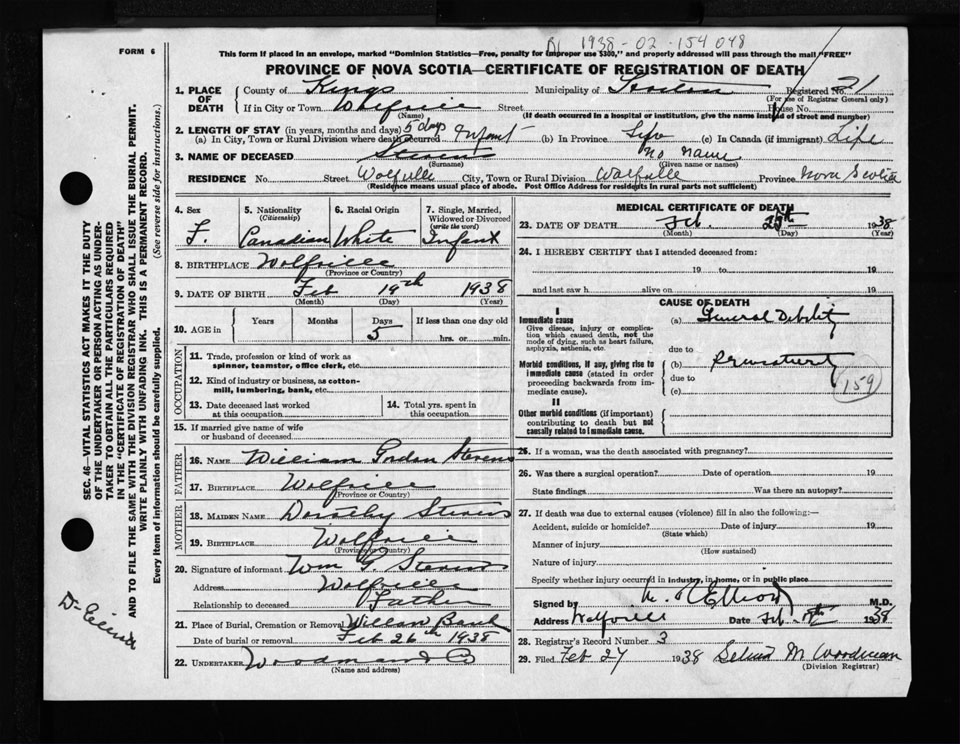 1938-02-154 048
FORM 6
This form if placed in an envelope, marked "Dominion Statistics—Free, penalty for improper use $300," and properly addressed will pass through the mail "FREE"
PROVINCE OF NOVA SCOTIA—CERTIFICATE OF REGISTRATION OF DEATH
1. PLACE OF DEATH County of Kings Municipality of Registered No. 21
(For use of Registrar General only)
If in City or Town Wolfville Street House No.
(Name) (If death occurred in a hospital or institution, give the name instead of street and number)
2. LENGTH OF STAY (in years, months and days) 5 days
(a) In City, Town or Rural Division where death occurred Infant (b) In Province Life (c) In Canada (if immigrant) Life
3. NAME OF DECEASED Stevens no name
(Surname) (Given name or names)
RESIDENCE No. Street Wolfville City, Town or Rural Division Wolfville Province Nova Scotia
(Residence means usual place of abode. Post Office Address for residents in rural parts not sufficient)
4. Sex 5. Nationality (Citizenship) 6. Racial Origin 7. Single, Married, Widowed or Divorced (write the word)
F. Canadian White Infant
8. BIRTHPLACE Wolfville
(Province or Country)
9. DATE OF BIRTH Feb 19th 1938
(Month) (Day) (Year)
10. AGE in Years Months Days If less than one day old
5 hrs. or min.
OCCUPATION
11. Trade, profession or kind of work as spinner, teamster, office clerk, etc.
12. Kind of industry or business, as cotton-mill, lumbering, bank, etc.
13. Date deceased last worked at this occupation
14. Total yrs. spent in this occupation
15. If married give name of wife or husband of deceased
FATHER
16. NAME William Gordon Stevens
17. BIRTHPLACE Wolfville
(Province or Country)
MOTHER
18. MAIDEN NAME Dorothy Stevens
19. BIRTHPLACE Wolfville
(Province or Country)
20. Signature of informant Wm G. Stevens
Address Wolfville
Relationship to deceased Father
21. Place of Burial, Cremation or Removal Willow Bank
Date of burial or removal Feb 26th 1938
22. UNDERTAKER Woodman and Co
MEDICAL CERTIFICATE OF DEATH
23. DATE OF DEATH Feb. 25th 1938
(Month) (Day) (Year)
24. I HEREBY CERTIFY that I attended deceased from:
19 to 19
and last saw h alive on 19
CAUSE OF DEATH
I
Immediate cause (a) General Debility
Give disease, injury or complication which caused death, not the mode of dying, such as heart failure, asphyxia, asthenia, etc.
due to
Morbid conditions, if any, giving rise to immediate cause (stated in order proceeding backwards from immediate cause).
(b) Prematurity
due to
(c)
159
II
Other morbid conditions (if important) contributing to death but not causally related to immediate cause.
25. If a woman, was the death associated with pregnancy?
26. Was there a surgical operation? Date of operation 19
State findings Was there an autopsy?
27. If death was due to external causes (violence) fill in also the following:—
Accident, suicide or homicide? Date of injury 19
(State which)
Manner of injury
(How sustained)
Nature of injury
Specify whether injury occurred in industry, in home, or in public place
Signed by M. R Elliott M.D.
Address Wolfville Date Feb. 1938
28. Registrar's Record Number 3
29. Filed Feb 27 1938 Selina M Woodman
(Division Registrar)
SEC. 46—VITAL STATISTICS ACT MAKES IT THE DUTY
OF THE UNDERTAKER OR PERSON ACTING AS UNDER-
TAKER TO OBTAIN ALL THE PARTICULARS REQUIRED
IN THE "CERTIFICATE OF REGISTRATION OF DEATH"
AND TO FILE THE SAME WITH THE DIVISION REGISTRAR WHO SHALL ISSUE THE BURIAL PERMIT.
WRITE PLAINLY WITH UNFADING INK. THIS IS A PERMANENT RECORD.
Every item of information should be carefully supplied. (See reverse side for instructions.)